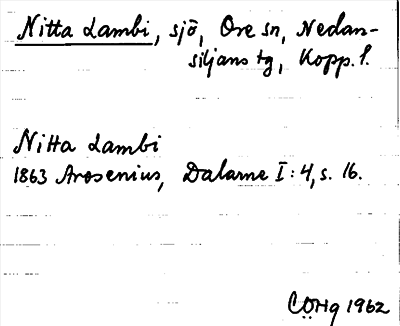 Nitta Lambi, sjö, Ore sn, Nedan-
siljans tg, Kopp. l.
Nitta Lambi
1863 Arosenius, Dalarne I:4, s. 16.
CÖHg 1962